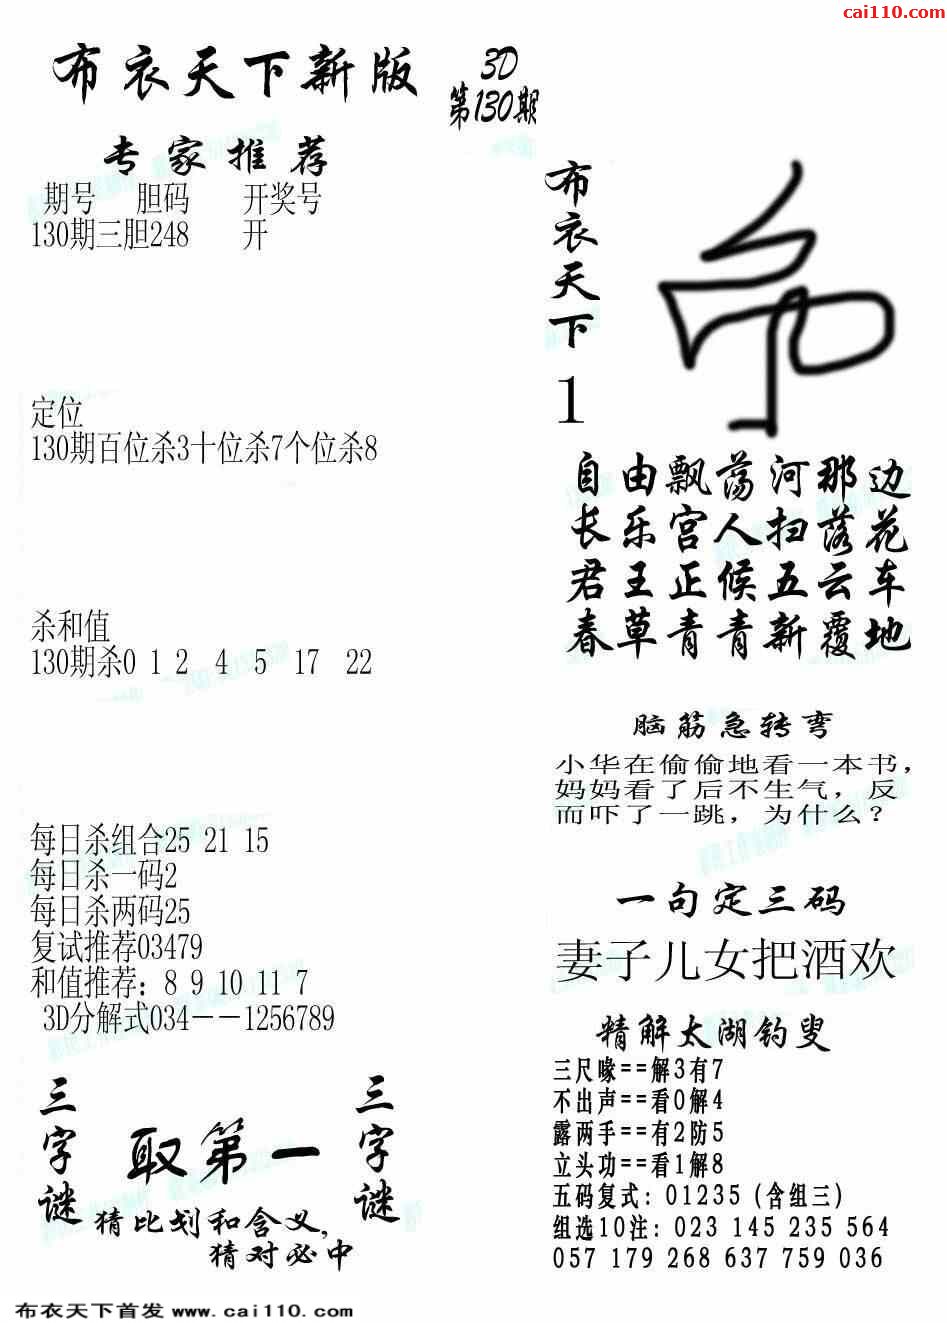 cai110.com
布衣天下新版
3D
第130期
专家推荐
期号 胆码 开奖号
130期三胆248 开
定位
130期百位杀3十位杀7个位杀8
杀和值
130期杀0 1 2 4 5 17 22
每日杀组合25 21 15
每日杀一码2
每日杀两码25
复试推荐03479
和值推荐：8 9 10 11 7
3D分解式034－－1256789
三字谜
取第一
三字谜
猜比划和含义，
猜对必中
布衣天下
1
自由飘荡河那边
长乐宫人扫落花
君王正候五云车
春草青青新覆地
脑筋急转弯
小华在偷偷地看一本书，
妈妈看了后不生气，反
而吓了一跳，为什么？
一句定三码
妻子儿女把酒欢
精解太湖钓叟
三尺喙==解3有7
不出声==看0解4
露两手==有2防5
立头功==看1解8
五码复式：01235（含组三）
组选10注：023 145 235 564
057 179 268 637 759 036
布衣天下首发 www.cai110.com